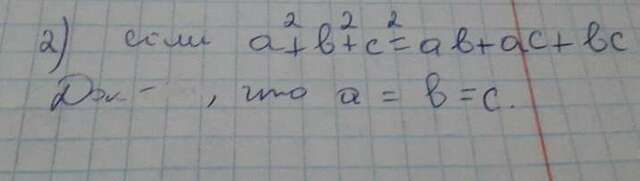 2) если a²+b²+c²=ab+ac+bc
Док- , что a = b = c.